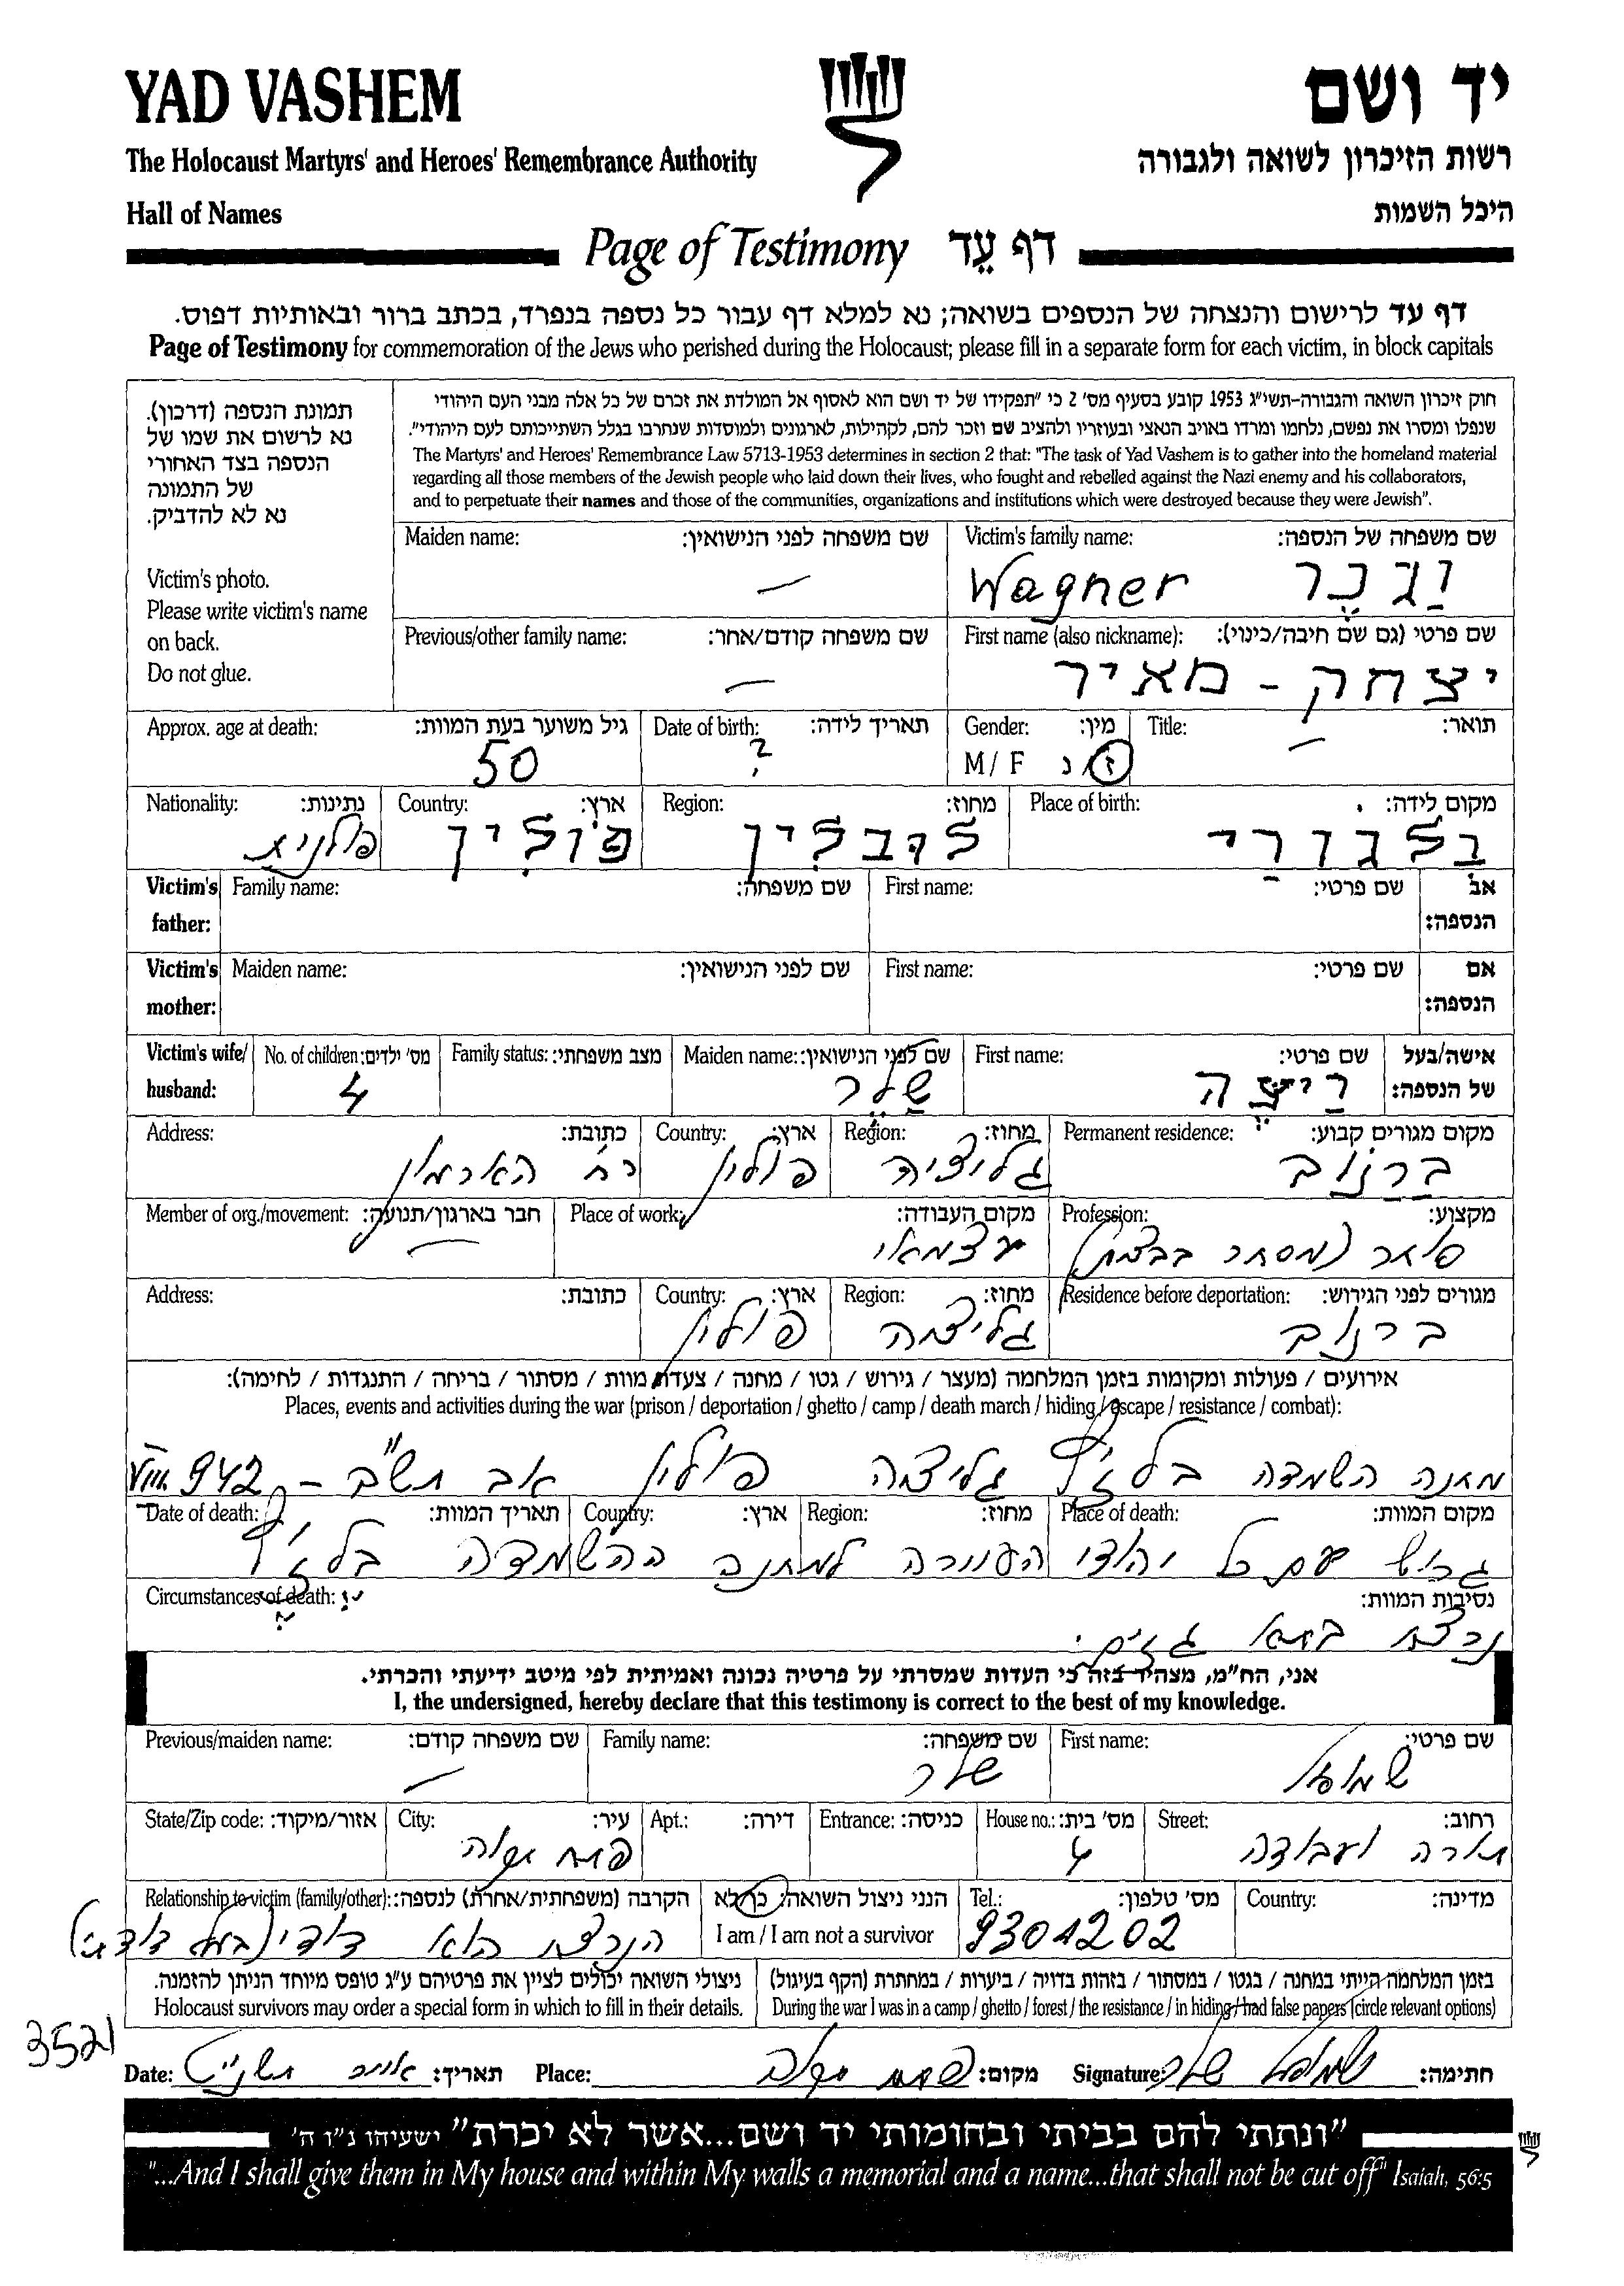 YAD VASHEM
יד ושם
The Holocaust Martyrs' and Heroes' Remembrance Authority
רשות הזיכרון לשואה ולגבורה
Hall of Names
היכל השמות
Page of Testimony דף עֵד
דף עד לרישום והנצחה של הנספים בשואה; נא למלא דף עבור כל נספה בנפרד, בכתב ברור ובאותיות דפוס.
Page of Testimony for commemoration of the Jews who perished during the Holocaust; please fill in a separate form for each victim, in block capitals
תמונת הנספה (דרכון).
נא לרשום את שמו של
הנספה בצד האחורי
של התמונה
נא לא להדביק.
Victim's photo.
Please write victim's name
on back.
Do not glue.
חוק זיכרון השואה והגבורה-תשי"ג 1953 קובע בסעיף מס' 2 כי "תפקידו של יד ושם הוא לאסוף אל המולדת את זכרם של כל אלה מבני העם היהודי
שנפלו ומסרו את נפשם, נלחמו ומרדו באויב הנאצי ובעוזריו ולהציב שם וזכר להם, לקהילות, לארגונים ולמוסדות שנחרבו בגלל השתייכותם לעם היהודי".
The Martyrs' and Heroes' Remembrance Law 5713-1953 determines in section 2 that: "The task of Yad Vashem is to gather into the homeland material
regarding all those members of the Jewish people who laid down their lives, who fought and rebelled against the Nazi enemy and his collaborators,
and to perpetuate their names and those of the communities, organizations and institutions which were destroyed because they were Jewish".
Victim's family name: שם משפחה של הנספה:
Wagner וַגנֶר
Maiden name: שם משפחה לפני הנישואין:
—
First name (also nickname): שם פרטי (גם שם חיבה/כינוי):
יצחק - מאיר
Previous/other family name: שם משפחה קודם/אחר:
—
Title: תואר:
—
Gender: מין:
M / F ז / נ
Date of birth: תאריך לידה:
?
Approx. age at death: גיל משוער בעת המוות:
50
Place of birth: מקום לידה:
בלגורַי
Region: מחוז:
לובלין
Country: ארץ:
פולין
Nationality: נתינות:
פולנית
Victim's father: אב הנספה:
First name: שם פרטי:
Family name: שם משפחה:
Victim's mother: אם הנספה:
First name: שם פרטי:
Maiden name: שם לפני הנישואין:
Victim's wife/ husband: אישה/בעל של הנספה:
First name: שם פרטי:
רַיצֶה
Maiden name: שם לפני הנישואין:
שַלֶר
Family status: מצב משפחתי:
No. of children: מס' ילדים:
4
Permanent residence: מקום מגורים קבוע:
ברנוב
Region: מחוז:
גליציה
Country: ארץ:
פולין
Address: כתובת:
רח הארמון
Profession: מקצוע:
סוחר (מסחר
Place of work: מקום העבודה:
עצמאי
Member of org./movement: חבר בארגון/תנועה:
—
Residence before deportation: מגורים לפני הגירוש:
ברנוב
Region: מחוז:
גליציה
Country: ארץ:
פולין
Address: כתובת:
אירועים / פעולות ומקומות בזמן המלחמה (מעצר / גירוש / גטו / מחנה / צעדת מוות / מסתור / בריחה / התנגדות / לחימה):
Places, events and activities during the war (prison / deportation / ghetto / camp / death march / hiding / escape / resistance / combat):
מחנה השמדה בלז'ץ גליציה פולין אב תש"ב - 942 VIII
Place of death: מקום המוות:
Region: מחוז:
Country: ארץ:
Date of death: תאריך המוות:
גורש עם כל יהודי העיירה למחנה ההשמדה בלז'ץ
Circumstances of death: נסיבות המוות:
נרצח בתא גזים.
אני, הח"מ, מצהיר בזה כי העדות שמסרתי על פרטיה נכונה ואמיתית לפי מיטב ידיעתי והכרתי.
I, the undersigned, hereby declare that this testimony is correct to the best of my knowledge.
First name: שם פרטי:
שמואל
Family name: שם משפחה:
שלר
Previous/maiden name: שם משפחה קודם:
—
Street: רחוב:
תורה ועבודה
House no.: מס' בית:
4
Entrance: כניסה:
Apt.: דירה:
City: עיר:
פתח תקוה
State/Zip code: אזור/מיקוד:
Country: מדינה:
Tel.: מס' טלפון:
9301202
הנני ניצול השואה: כן/לא
I am / I am not a survivor
Relationship to victim (family/other): הקרבה (משפחתית/אחרת) לנספה:
הנרצח הוא דודי (בעל דודתי)
בזמן המלחמה הייתי במחנה / בגטו / במסתור / בזהות בדויה / ביערות / במחתרת (הקף בעיגול)
During the war I was in a camp / ghetto / forest / the resistance / in hiding / had false papers (circle relevant options)
ניצולי השואה יכולים לציין את פרטיהם ע"ג טופס מיוחד הניתן להזמנה.
Holocaust survivors may order a special form in which to fill in their details.
3521
Signature: שמואל שלר חתימה:
Place: פתח תקוה מקום:
Date: אייר תשנ"ט תאריך:
"ונתתי להם בביתי ובחומותי יד ושם...אשר לא יכרת" ישעיהו נ"ו ה'
"...And I shall give them in My house and within My walls a memorial and a name...that shall not be cut off" Isaiah, 56:5